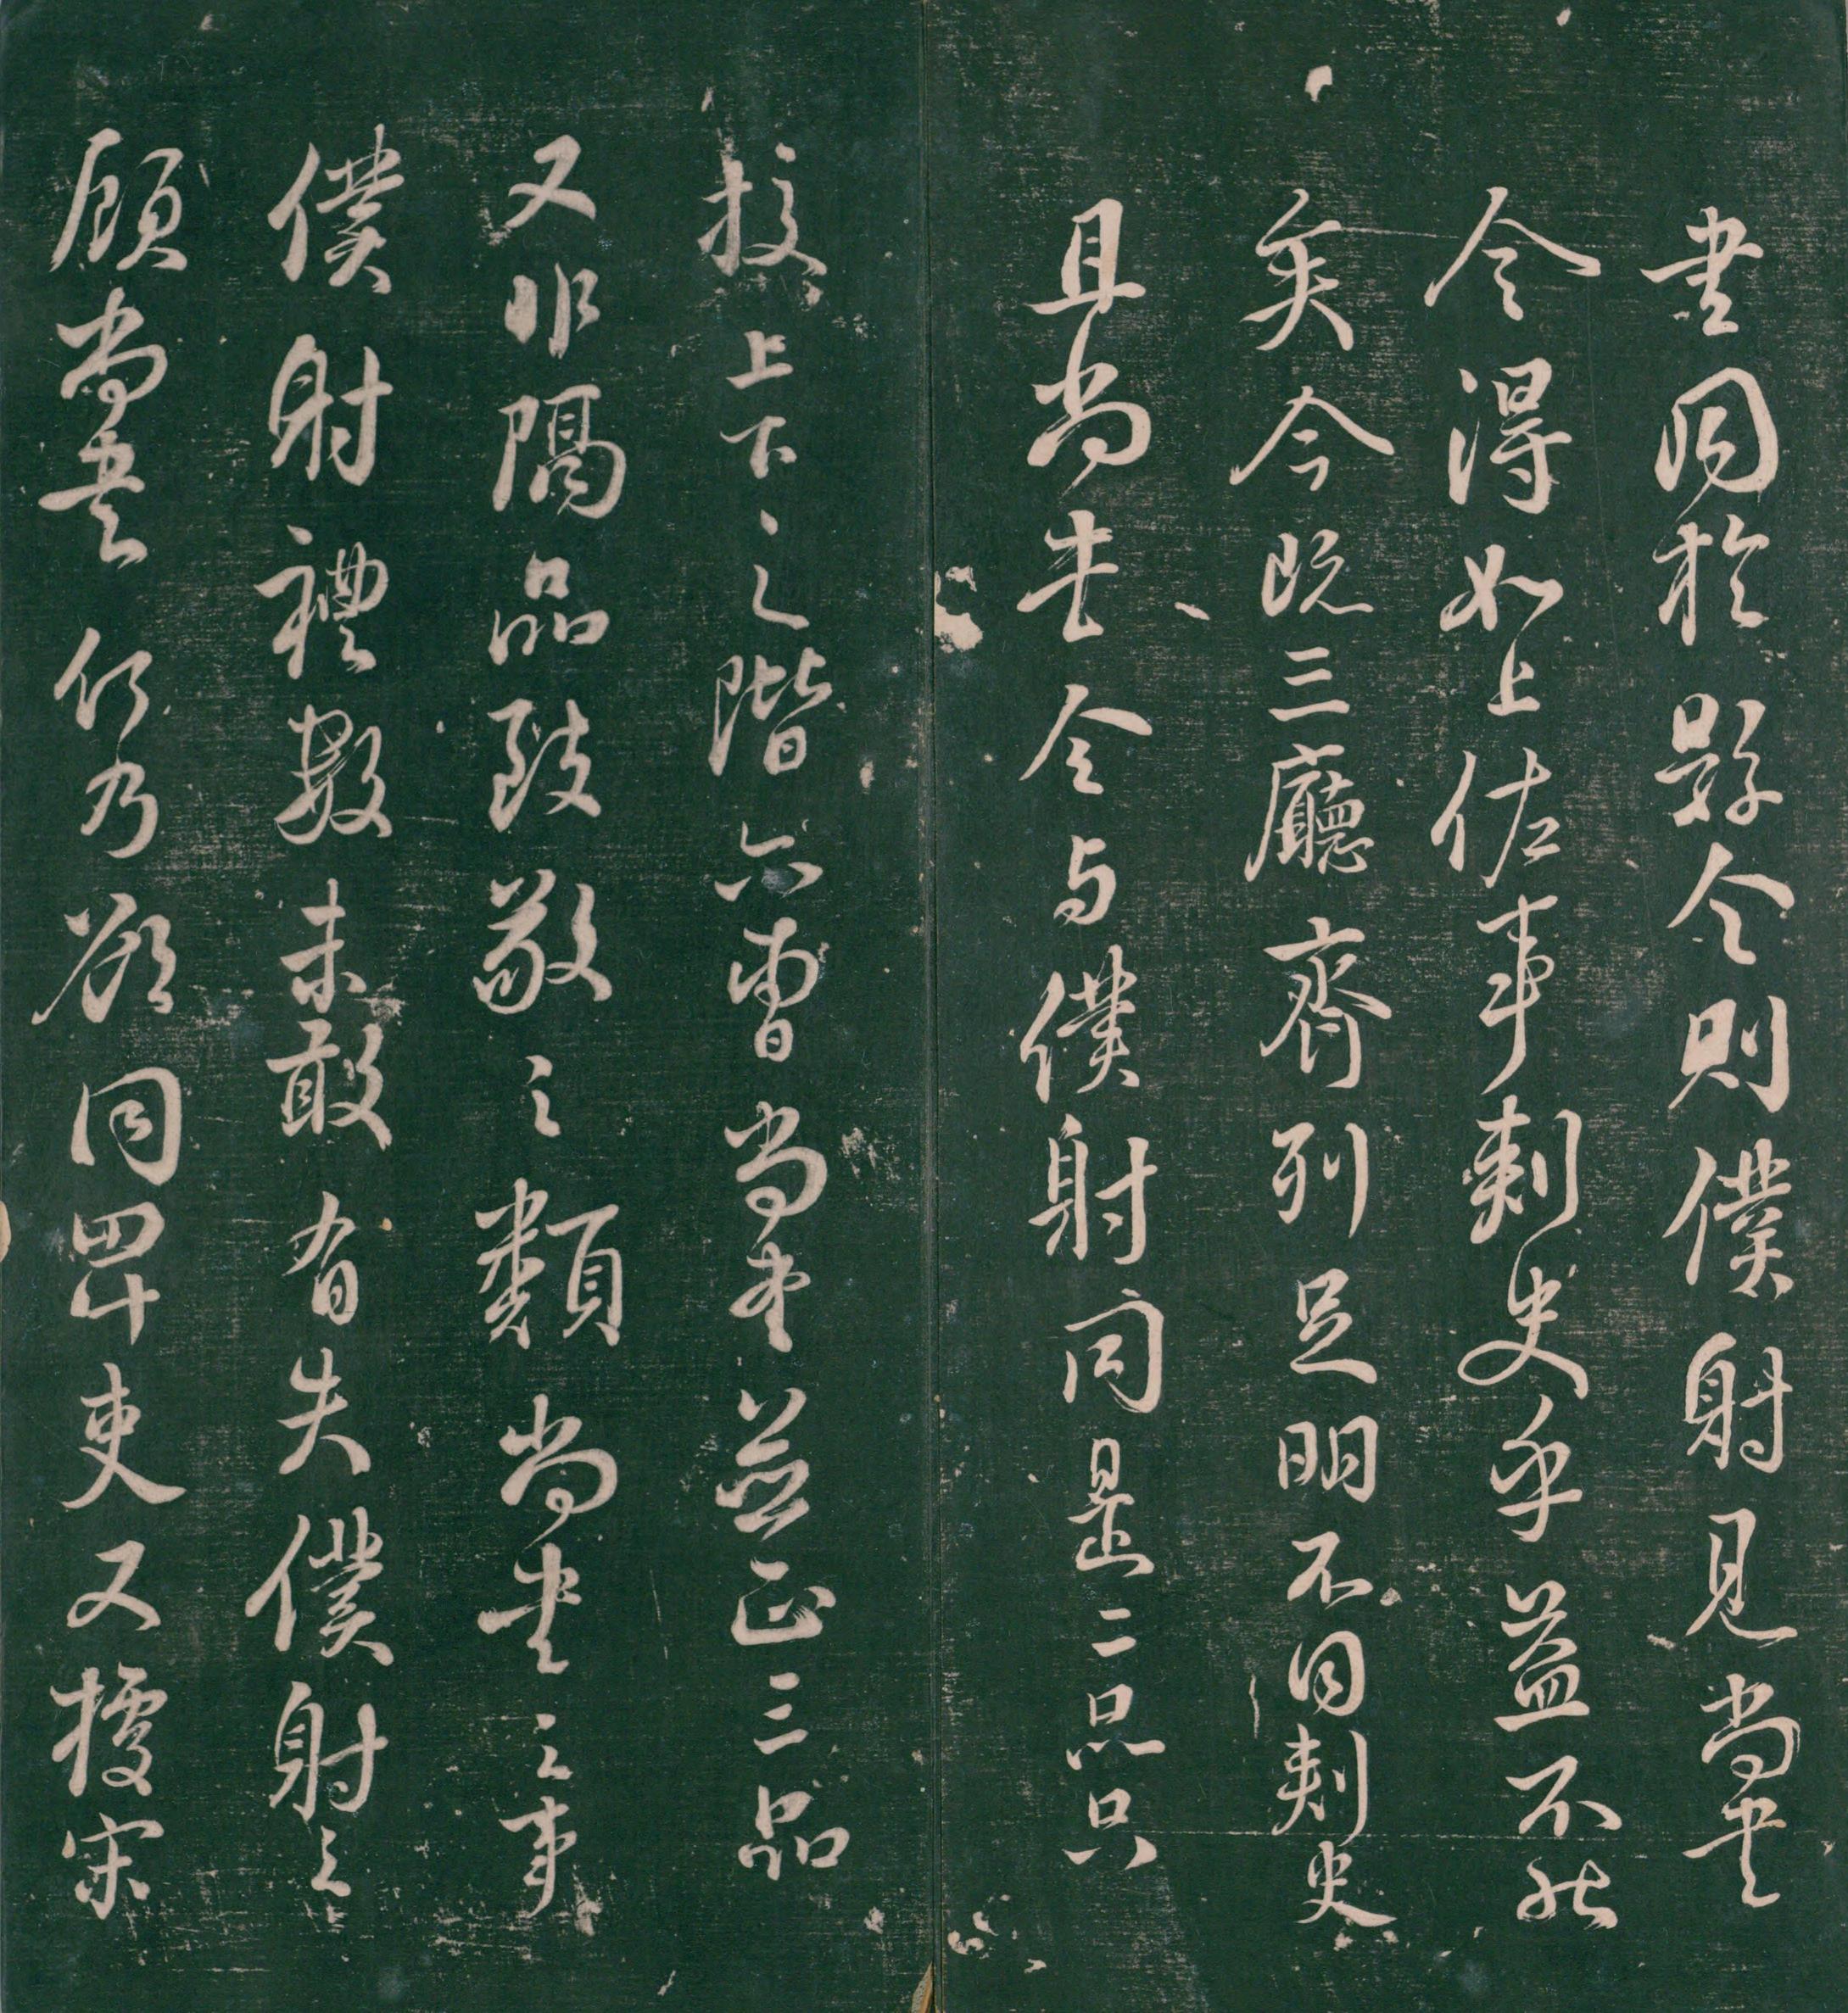 書同於縣令則僕射見尚書
令得如上佐事刺史乎益不然
矣今既三廳齊列足明不同刺史
且尚書令与僕射同是二品只
挍上下之階六曹尚書並正三品
又非隔品致敬之類尚書之事
僕射禮數未敢有失僕射之
顧尚書何乃欲同卑吏又據宋